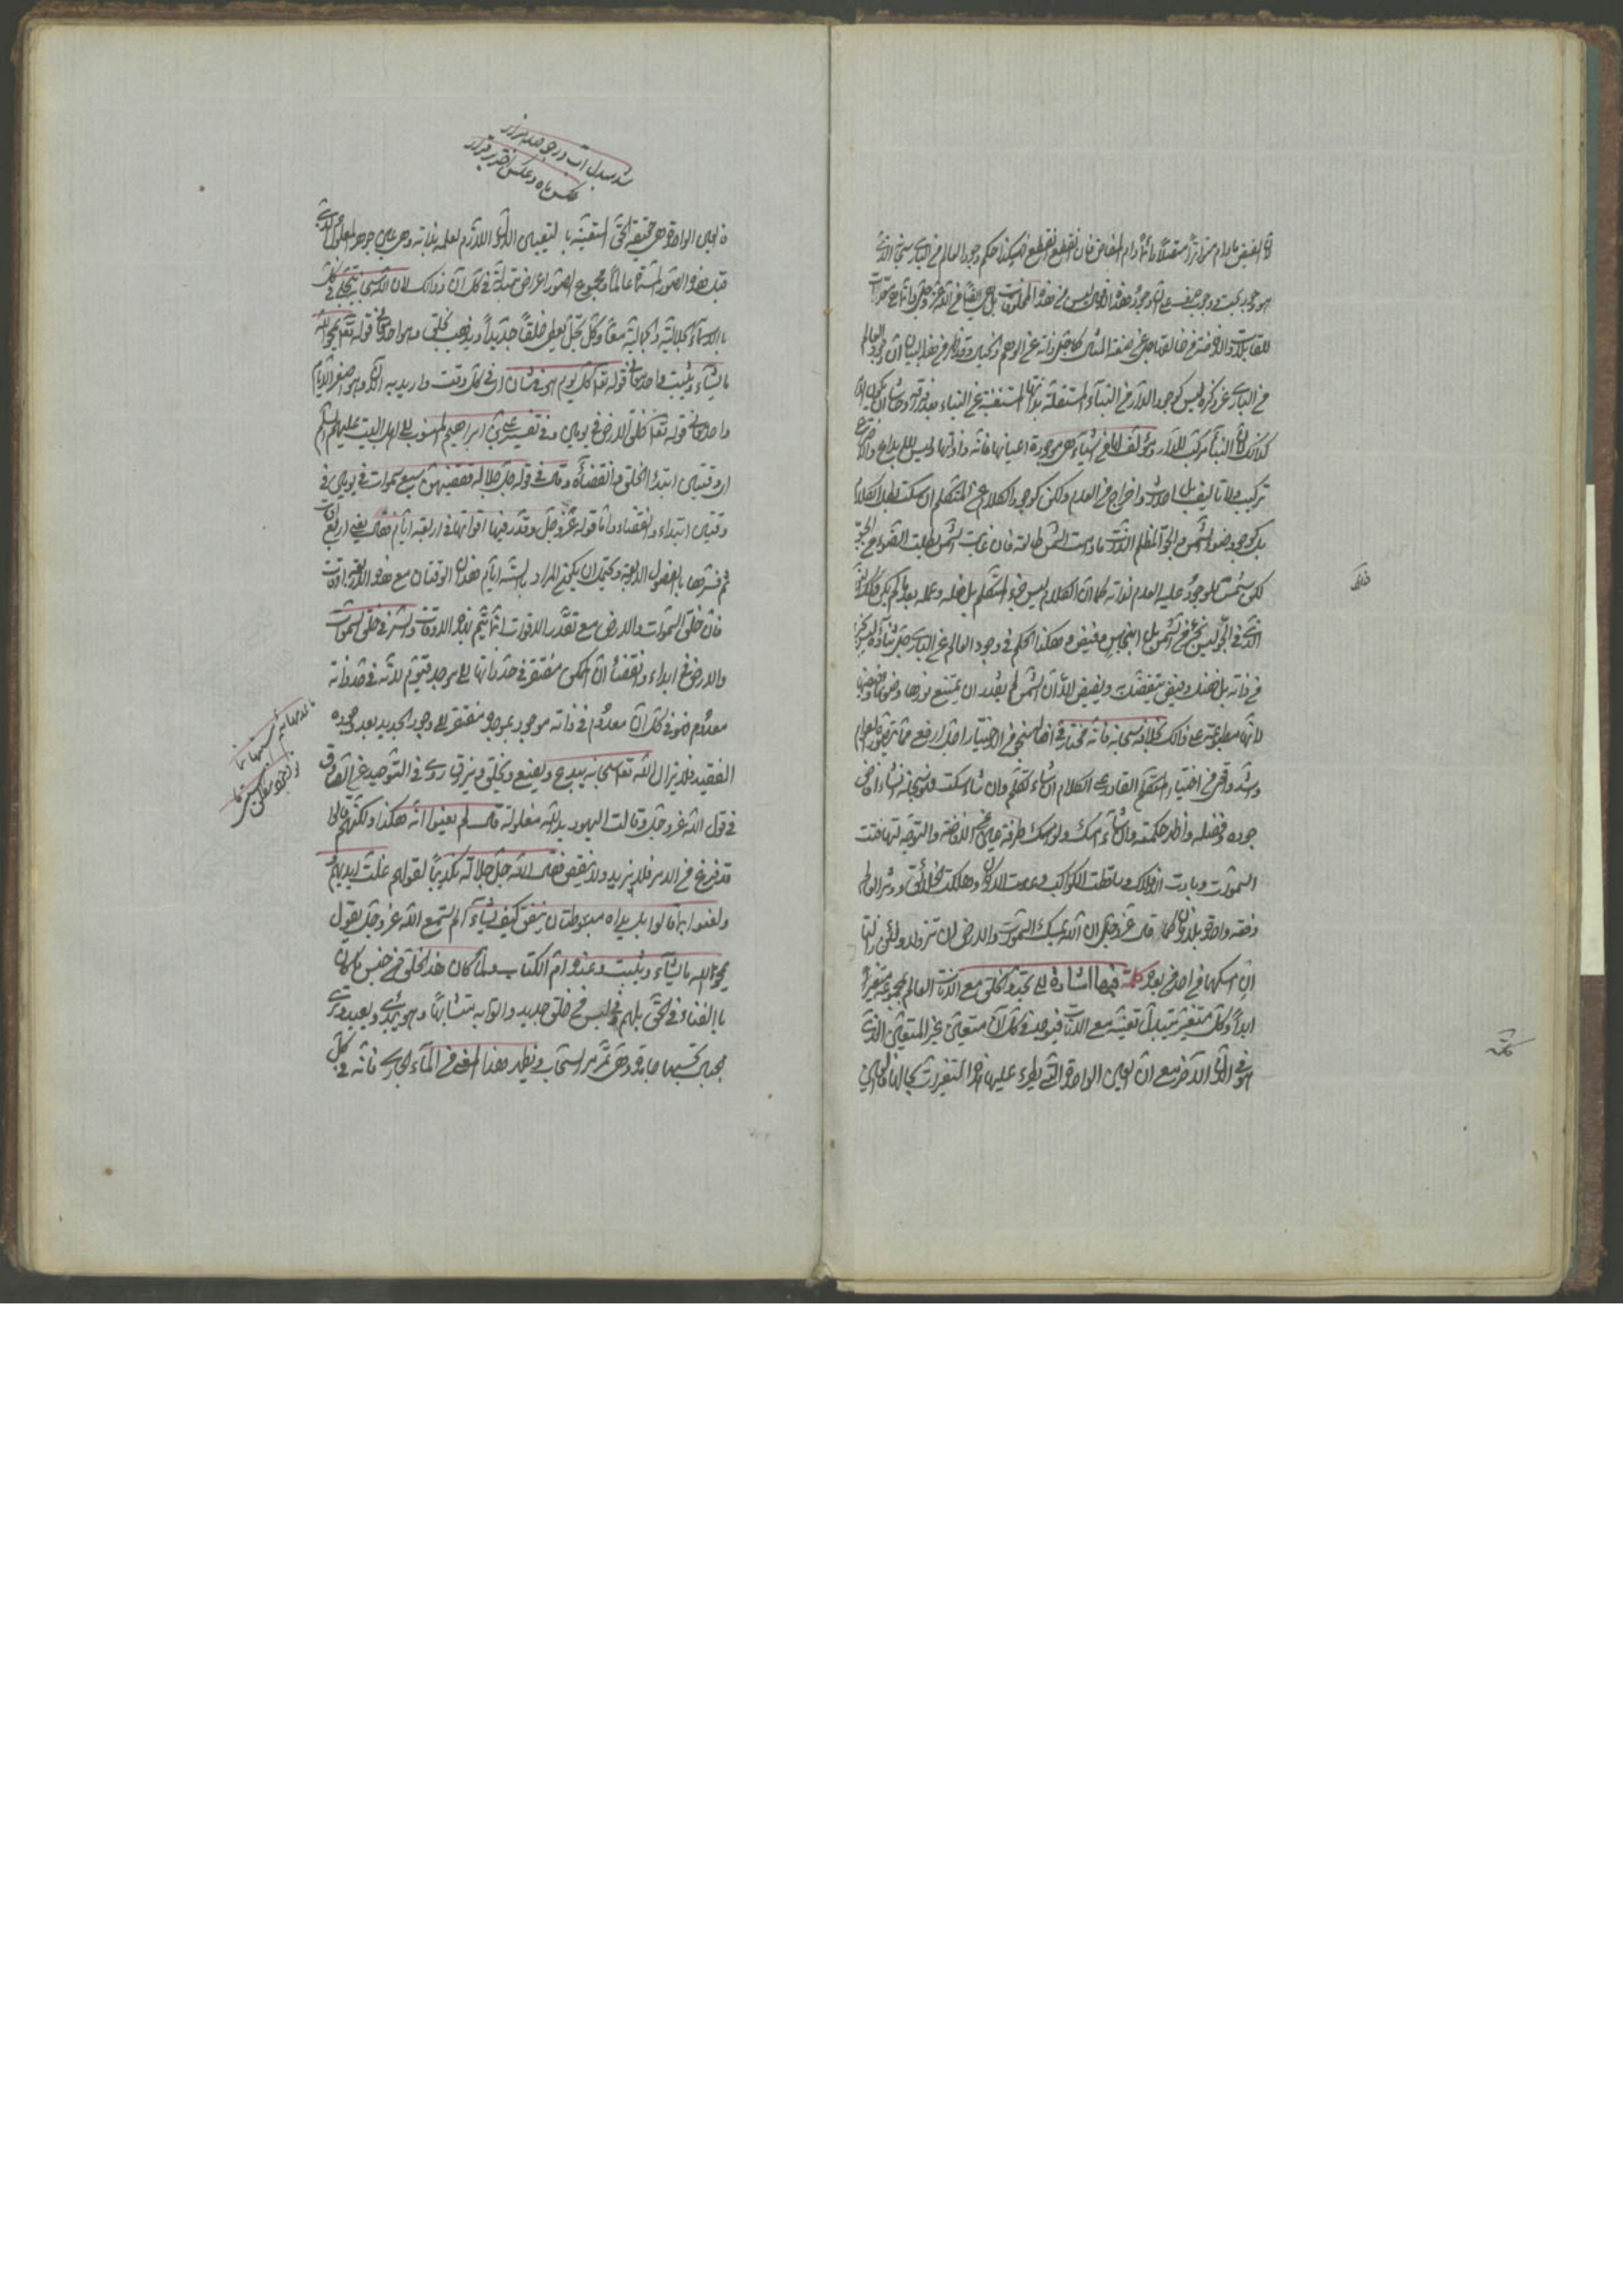 الفيض مادام متواترا متصلا دائما دام المفاض فان انقطع انقطع فهكذا حكم وجود العالم من الباري سبحانه الذي
هو وجود بحت
للقابليات والافاضة من خالقها جل عن صفة المثل كما جل ذاته عن الوهم والخيال وقد ظهر من هذا البيان ان وجود العالم
من الباري عز ذكره ليس كوجود الدار من البناء المستقلة بذاتها المستغنية عن البناء بعد فراقه وحاشاه ان يكون
كذلك لان البناء مركب للدار ومؤلف لها من اشياء هي موجودة اعيانها قائمة ذواتها وليس الابداع والاختراع
تركيب ولا تاليف بل احداث واخراج من العدم ولكن كوجود الكلام عن المتكلم ان سكت بطل الكلام
بل كوجود ضوء الشمس في الجو المظلم الذات مادامت الشمس طالعة فان غابت الشمس بطلت الضوء من الجو
لكن شمس الوجود يمتنع عليه العدم لذاته كما ان الكلام ليس جزء المتكلم بل فعله وعمله بعد ما لم يكن وكذا النور
الذي في الجو ليس بجزء من الشمس بل هو انبجاس وفيض منها فهكذا الحكم في وجود العالم عن الباري جل ثناؤه ليس بجزء
من ذاته بل فضل وفيض يتفضل به ويفيض الا ان الشمس لم يقدر ان يمنع نورها وفيضها
لانها مطبوعة على ذلك بخلافه سبحانه فانه مختار في افعاله بنحو من الاختيار اجل وارفع مما يتصوره العوام
واشد واقوى من اختيار المتكلم القادر على الكلام ان شاء تكلم وان شاء سكت فهو سبحانه ان شاء افاض
جوده وفضله واظهر حكمته وان شاء امسك ولو امسك طرفة عين عن الافاضة والتوجه لتهافتت
السموات وبادت الافلاك وتساقطت الكواكب وعدمت الاركان وهلكت الخلائق ودثر العالم
دفعة واحدة بلا زمان كما قال عز وجل ان الله يمسك السموات والارض ان تزولا ولئن زالتا
ان امسكهما من احد من بعده كلمة فيها اشارة الى تجدد الخلق مع الانات العالم بمجموعه متغير
ابدا وكل متغير يتبدل تعينه مع الانات فيوجد في كل آن متعين غير المتعين الذي
هو في الآن الآخر مع ان العين الواحدة التي يطرء عليها هذه التغيرات بحالها فالعين
قف
كلمة
شد مبدل آب در جو چند بار
عكس ماه و عكس اختر برقرار
فالعين الواحدة هي حقيقة الحق المتعينة بالتعين الاول اللازم لعلمه بذاته وهي عين جوهر المعقول الذي
قبل هذه الصور المسماة عالما ومجموع الصور اعراض متبدلة في كل آن وذلك لان الله سبحانه يتجلى في كل
بالاسماء الجلالية والجمالية معا وكل تجل يعطي خلقا جديدا ويذهب بخلق وهو احد معاني قوله تعالى يمحو الله
ما يشاء ويثبت واحد معاني قوله تعالى كل يوم هو في شان اي في كل وقت واريد به الآن وهو اصغر الايام
واحد معاني قوله تعالى خلق الارض في يومين وفي تفسير علي بن ابراهيم المنسوب الى اهل البيت عليهم السلام
اي وقتين ابتداء الخلق وانقضائه وقال في قوله جل جلاله فقضيهن سبع سموات في يومين في
وقتين ابتداء وانقضاء واما قوله عز وجل وقدر فيها اقواتها في اربعة ايام فقال يعني اربعة اوقات
ثم فسرها بالفصول الاربعة ويحتمل ان يكون المراد بالستة ايام هذان الوقتان مع هذه الاربعة اوقات
فان خلق السموات والارض مع تقدر الاقوات انما يتم بهذه الاوقات والسر في خلق السموات
والارض في ابتداء وانقضاء ان الممكن مفتقر في حد ذاته الى موجد قيوم لانه في حد ذاته
معدوم فهو في كل آن معدوم في ذاته موجود بموجده مفتقر الى وجود جديد بعد وجوده
الفقيد فلا يزال الله تعالى سبحانه يبدع ويصنع ويخلق ويرزق روى في التوحيد عن الصادق
في قول الله عز وجل وقالت اليهود يد الله مغلولة قال لم يعنوا انه هكذا ولكنهم قالوا
قد فرغ من الامر فلا يزيد ولا ينقص فقال الله جل جلاله تكذيبا لقولهم غلت ايديهم
ولعنوا بما قالوا بل يداه مبسوطتان ينفق كيف يشاء الم تسمع الله عز وجل يقول
يمحو الله ما يشاء ويثبت وعنده ام الكتاب ولما كان هذا الخلق من جنس ما كان
بالفناء في الحق بل هم في لبس من خلق جديد واتوا به متشابها وهو يبدئ ويعيد وترى
الجبال تحسبها جامدة وهي تمر مر السحاب ونظير هذا المعنى من الماء الجاري فانه في كل